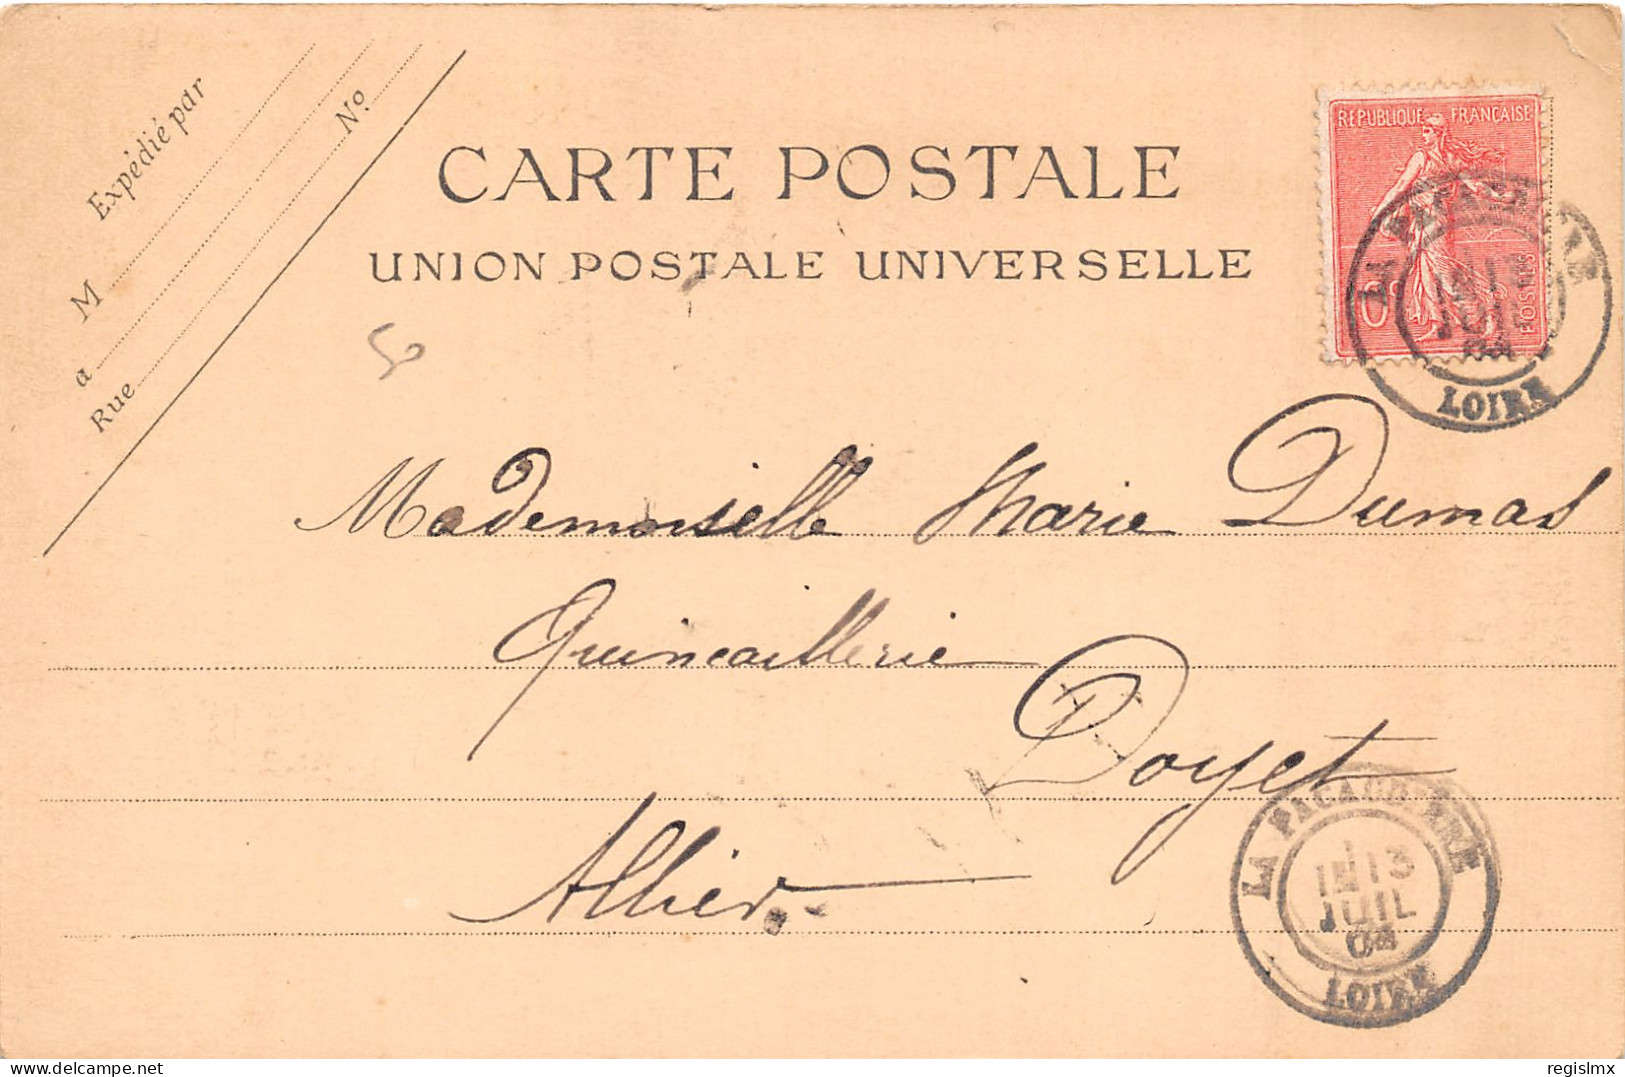 Expédié par
M
a
Rue
No
CARTE POSTALE
UNION POSTALE UNIVERSELLE
REPUBLIQUE FRANÇAISE
POSTES
LA PACAUDIÈRE
LOIRE
50
Mademoiselle Marie Dumas
Quincaillerie
Doyet
Allier
LA PACAUDIÈRE
13
JUIL
04
LOIRE
delcampe.net
regislmx